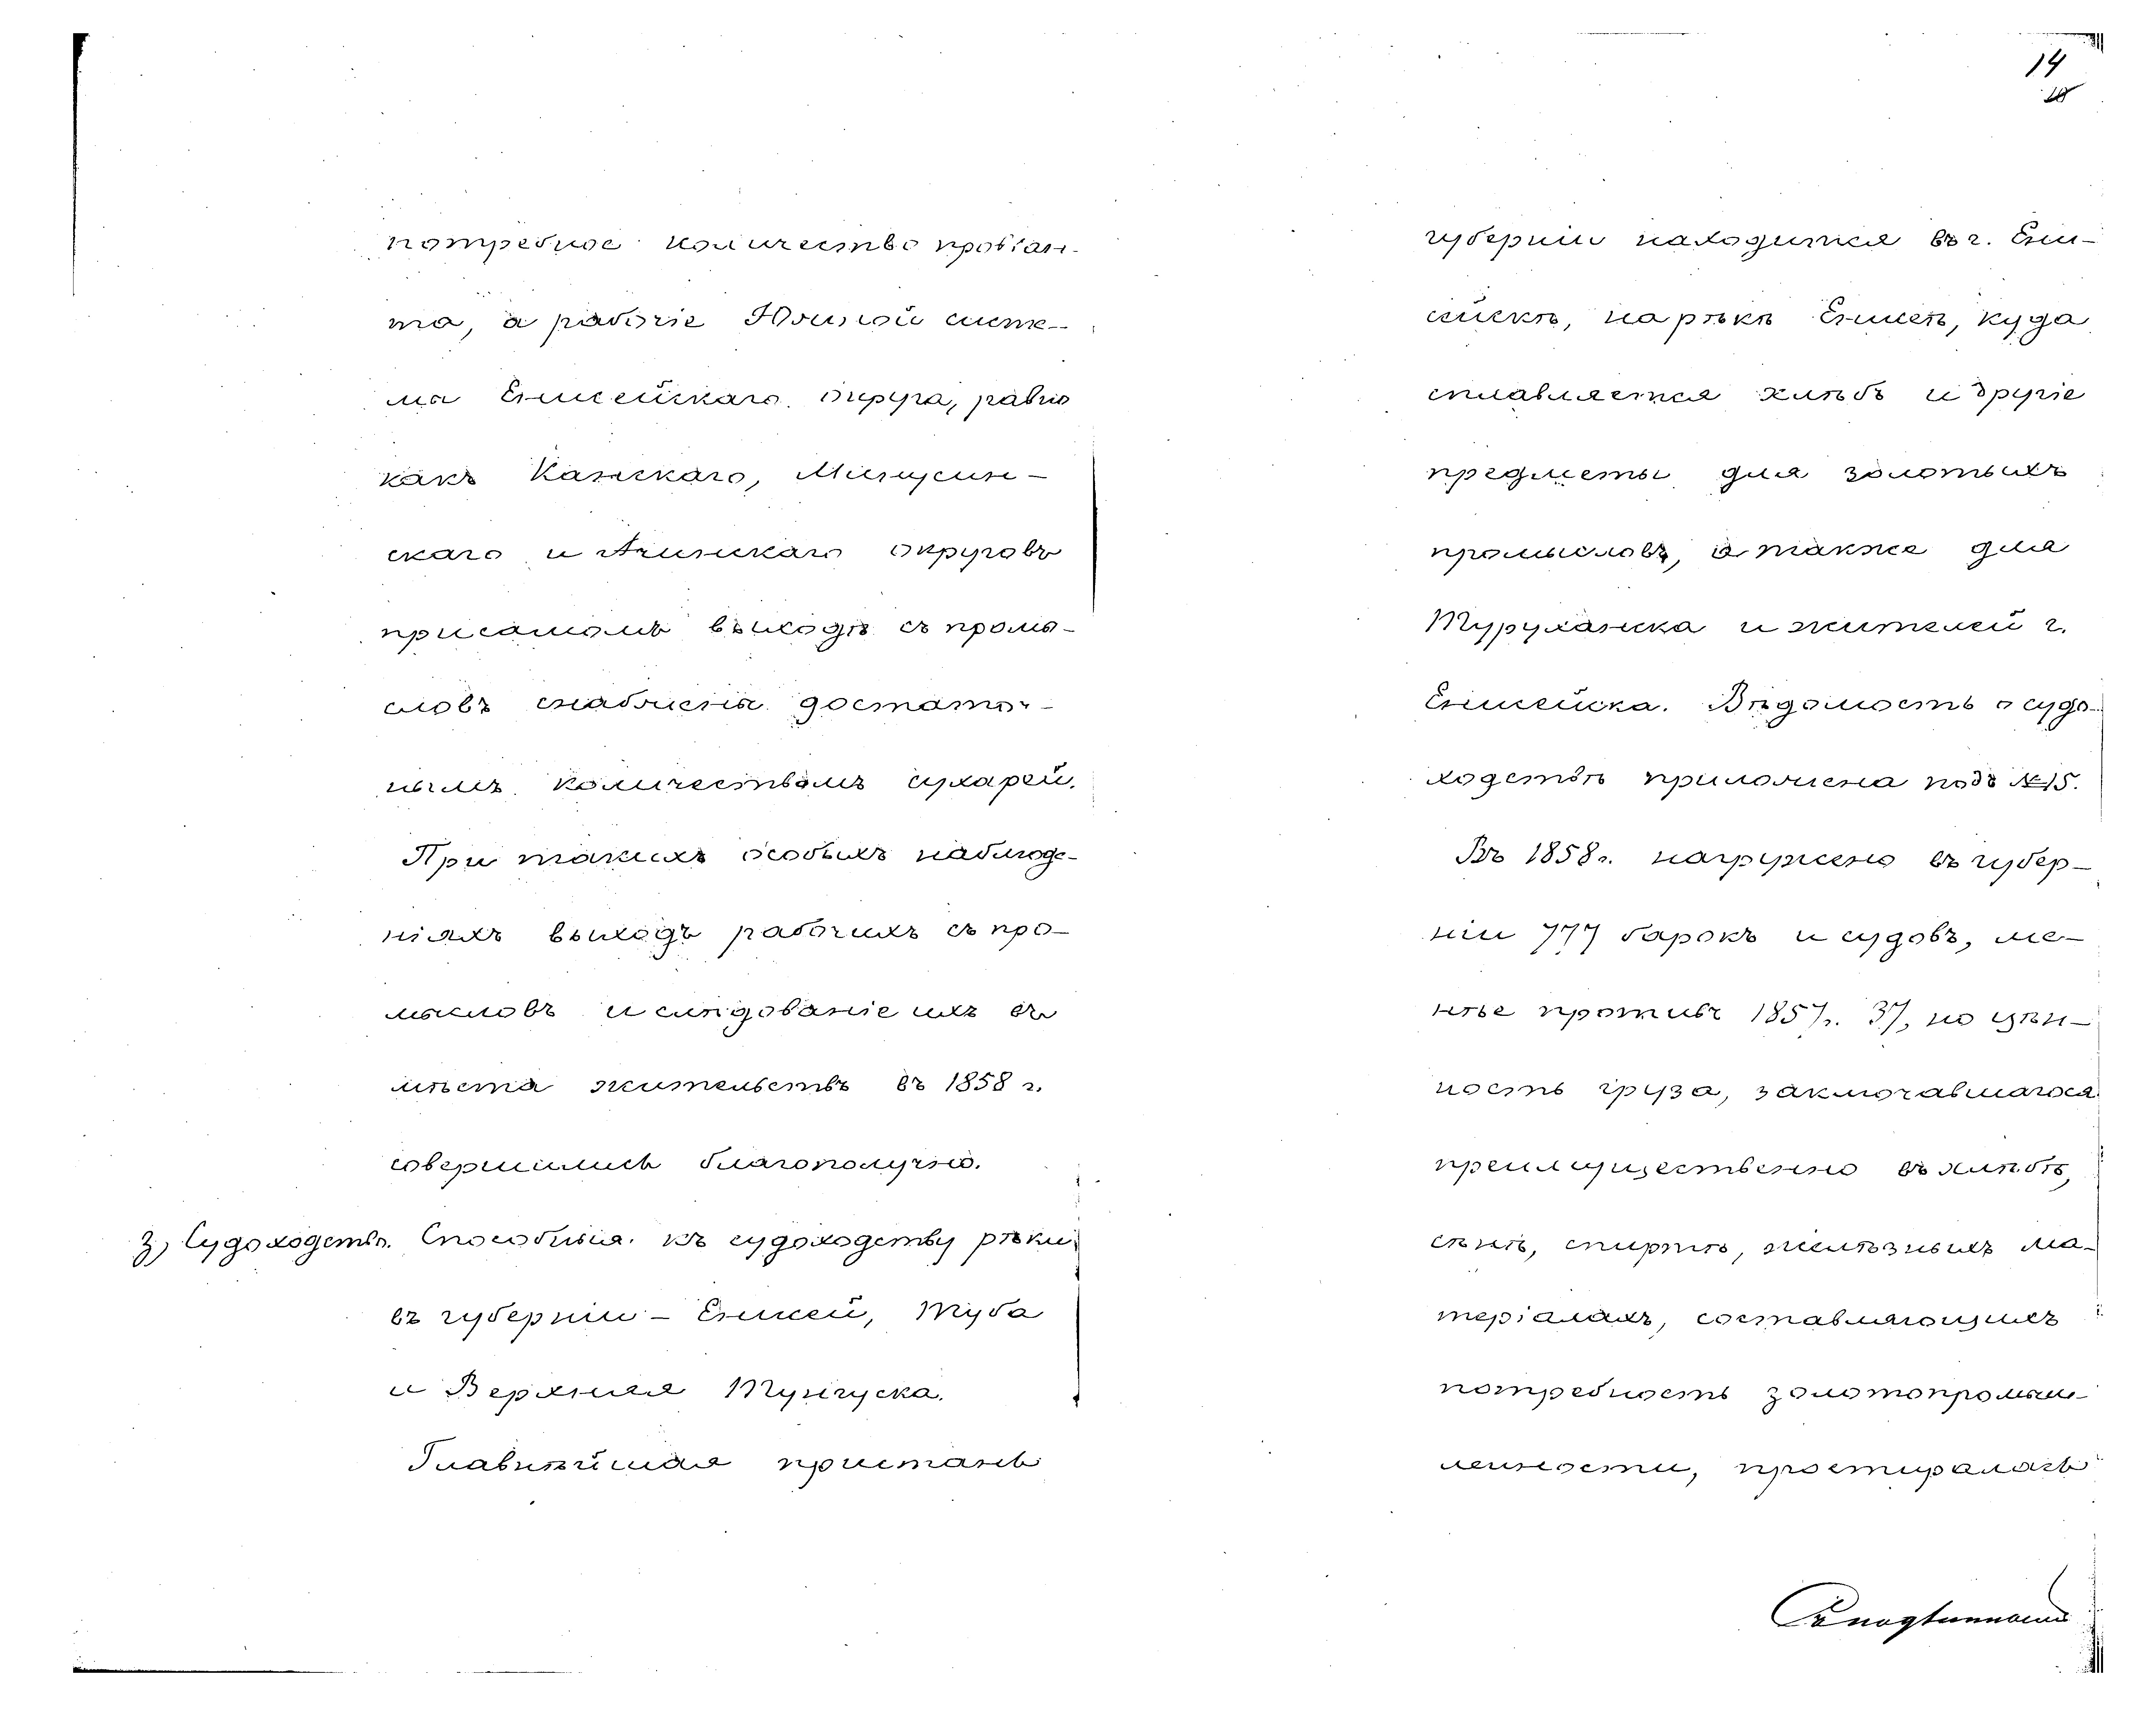 потребное количество провіан-
та, а рабочіе Южной систе-
мы Енисейскаго округа, равно
какъ Канскаго, Минусин-
скаго и Ачинскаго округовъ
при самомъ выходѣ съ промы-
словъ снабжены достаточ-
нымъ количествомъ сухарей.
При такихъ особыхъ наблюде-
ніяхъ выходъ рабочихъ съ про-
мысловъ и слѣдованіе ихъ въ
мѣста жительствъ въ 1858 г.
совершились благополучно.
З) Судоходство. Способныя къ судоходству рѣки
въ губерніи – Енисей, Туба
и Верхняя Тунгуска.
Главнѣйшая пристань
14
10
губерніи находится въ г. Ени-
сейскѣ, на рѣкѣ Енисеѣ, куда
сплавляется хлѣбъ и другіе
предметы для золотыхъ
промысловъ, а также для
Туруханска и жителей г.
Енисейска. Вѣдомость о судо-
ходствѣ приложена подъ №15.
Въ 1858 г. нагружено въ губер-
ніи 777 барокъ и судовъ, ме-
нѣе противъ 1857 г. 37, но цѣн-
ность груза, заключавшагося
преимущественно въ хлѣбѣ,
сѣнѣ, спиртѣ, желѣзныхъ ма-
теріалахъ, составляющихъ
потребность золотопромыш-
ленности, простиралась